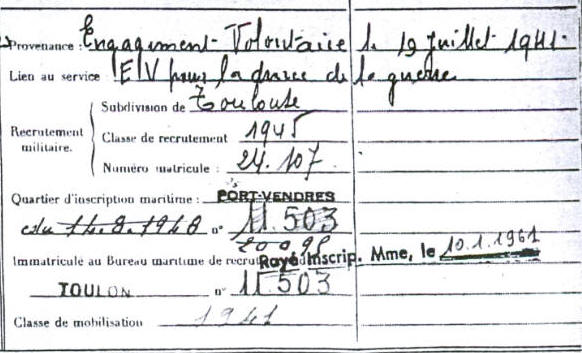 Provenance : Engagement Volontaire le 19 juillet 1941.
Lien au service : EV pour la durée de la guerre
Subdivision de Toulouse
Recrutement militaire.
Classe de recrutement 1945
Numéro matricule : 24.107.
Quartier d'inscription maritime : PORT-VENDRES
du 14-8-1948 n° 11.503
Immatriculé au Bureau maritime de recrut Rayé Inscrip. Mme, le 10.1.1961
TOULON n° 11503
Classe de mobilisation 1941